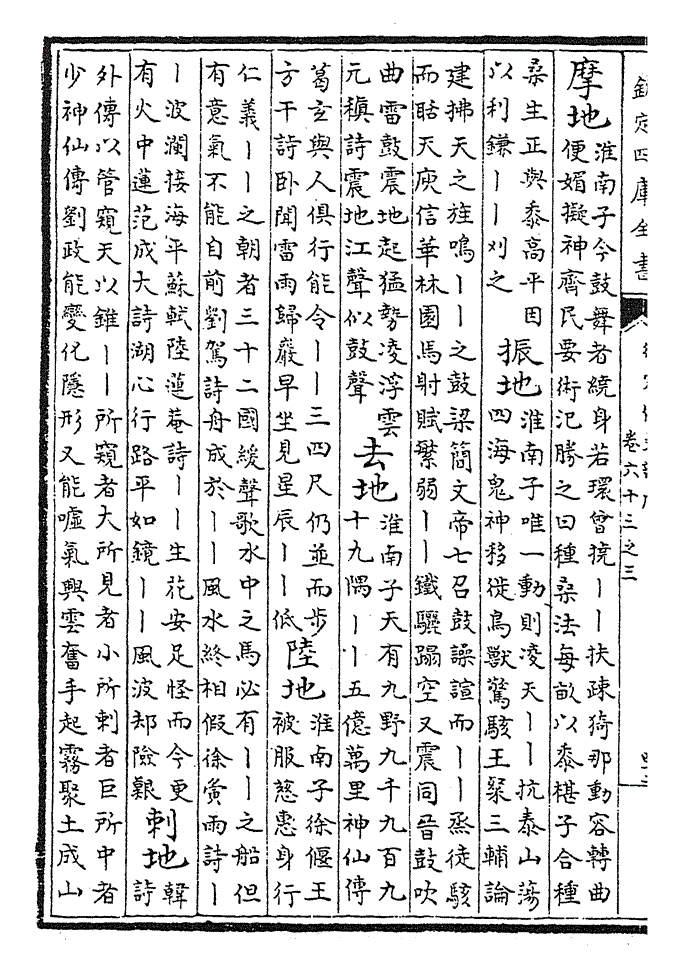 欽定四庫全書
卷六十三之三
摩地
淮南子今鼓舞者繞身若環曾撓丨丨扶疎猗那動容轉曲
便媚擬神齊民要術氾勝之曰種桑法每畝以黍椹子合種
桑生正與黍高平因
以利鎌丨丨刈之
振地
淮南子唯一動則凌天丨丨抗泰山蕩
四海鬼神移徙鳥獸驚駭王粲三輔論
建拂天之旌鳴丨丨之鼓梁簡文帝七召鼓譟諠而丨丨烝徒駭
而聒天庾信華林園馬射賦繁弱丨丨鐵驪蹋空又震同晉鼓吹
曲雷鼓震地起猛勢凌浮雲
元稹詩震地江聲似鼓聲
去地
淮南子天有九野九千九百九
十九隅丨丨五億萬里神仙傳
葛玄與人俱行能令丨丨三四尺仍並而步
方干詩卧聞雷雨歸巖早坐見星辰丨丨低
陸地
淮南子徐偃王
被服慈惠身行
仁義丨丨之朝者三十二國緩聲歌水中之馬必有丨丨之船但
有意氣不能自前劉駕詩舟成於丨丨風水終相假徐夤雨詩丨
丨波瀾接海平蘇軾陸蓮菴詩丨丨生花安足怪而今更
有火中蓮范成大詩湖心行路平如鏡丨丨風波却險艱
刺地
韓
詩
外傳以管窺天以錐丨丨所窺者大所見者小所刺者巨所中者
少神仙傳劉政能變化隱形又能噓氣興雲奮手起霧聚土成山